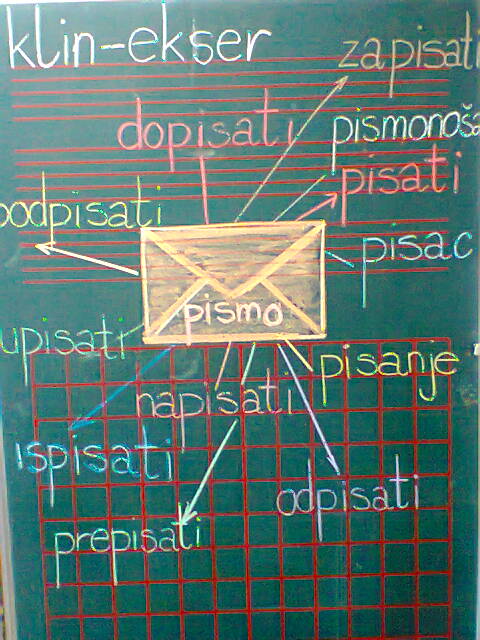 klin-ekser
zapisati
dopisati
pismonoša
pisati
podpisati
pisac
pismo
upisati
pisanje
napisati
ispisati
odpisati
prepisati